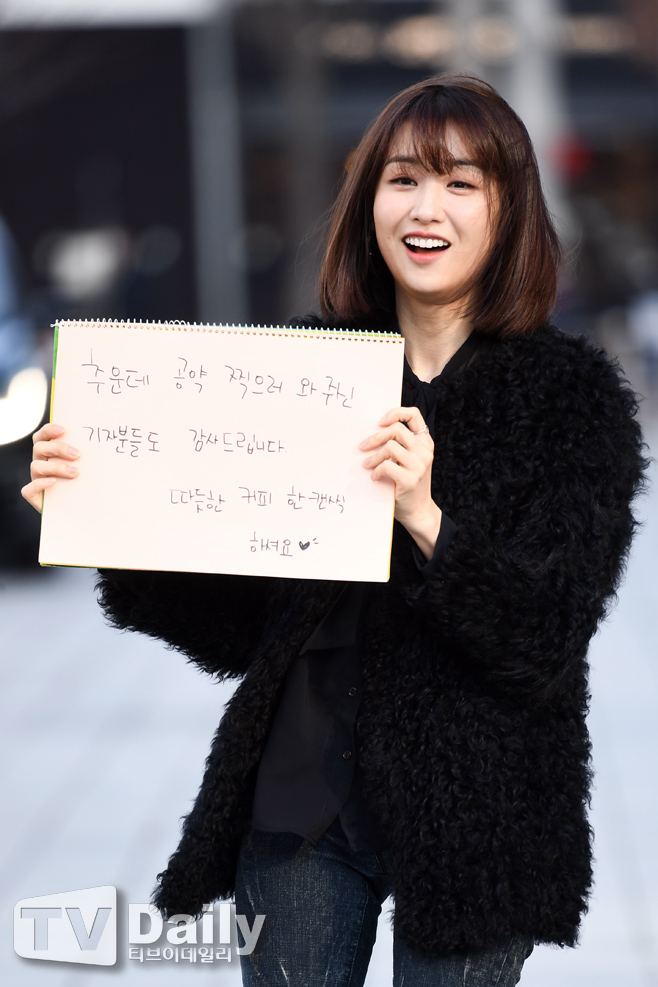 추운데 공약 찍으러 와주신
기자분들도 감사드립니다.
따듯한 커피 한캔씩
하셔요
TV Daily
티브이데일리